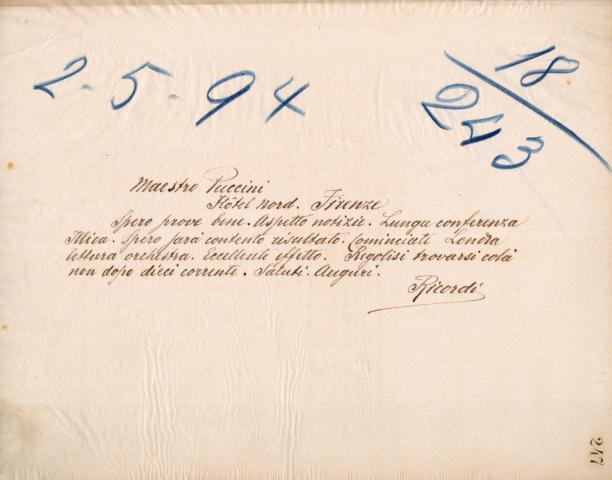 2-5-94
18/243
Maestro Puccini
Hôtel Nord. Firenze
Spero prove bene. Aspetto notizie. Lunga conferenza
Illica. Spero sarà contento risultato. Cominciate Londra
lettura orchestra. Eccellente effetto. Regolisi trovarsi colà
non dopo dieci corrente. Saluti. Auguri.
Ricordi
247